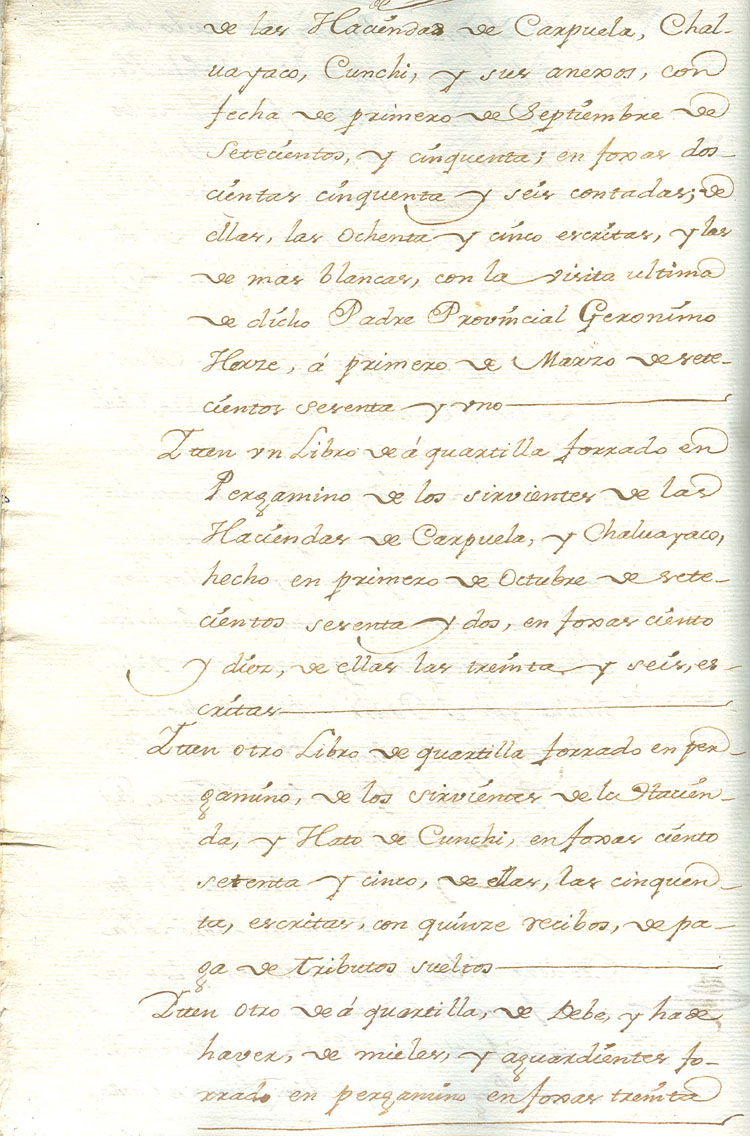 de las Haciendas de Carpuela, Chal-
uayaco, Cunchi, y sus anexos, con
fecha de primero de Septiembre de
Setecientos, y cinquenta; en foxas dos-
cientas cinquenta y seis contadas; de
ellas, las ochenta y cinco escritas, y las
de mas blancas, con la visita ultima
de dicho Padre Provincial Geronimo
Herze, á primero de Marzo de sete-
cientos sesenta y vno
Ytten vn Libro de á quartilla forrado en
Pergamino de los sirvientes de las
Haciendas de Carpuela, y Chaluayaco,
hecho en primero de Octubre de sete-
cientos sesenta y dos, en foxas ciento
y diez, de ellas las treinta y seis, es-
critas
Ytten otro Libro de quartilla forrado en per-
gamino, de los sirvientes de la Hacien-
da, y Hato de Cunchi, en foxas ciento
setenta y cinco, de ellas, las cinquen-
ta, escritas, con quinze recibos, de pa-
ga de tributos sueltos
Ytten otro de á quartilla, de Debe, y ha de
haver, de mieles, y aguardientes fo-
rrado en pergamino en foxas treinta